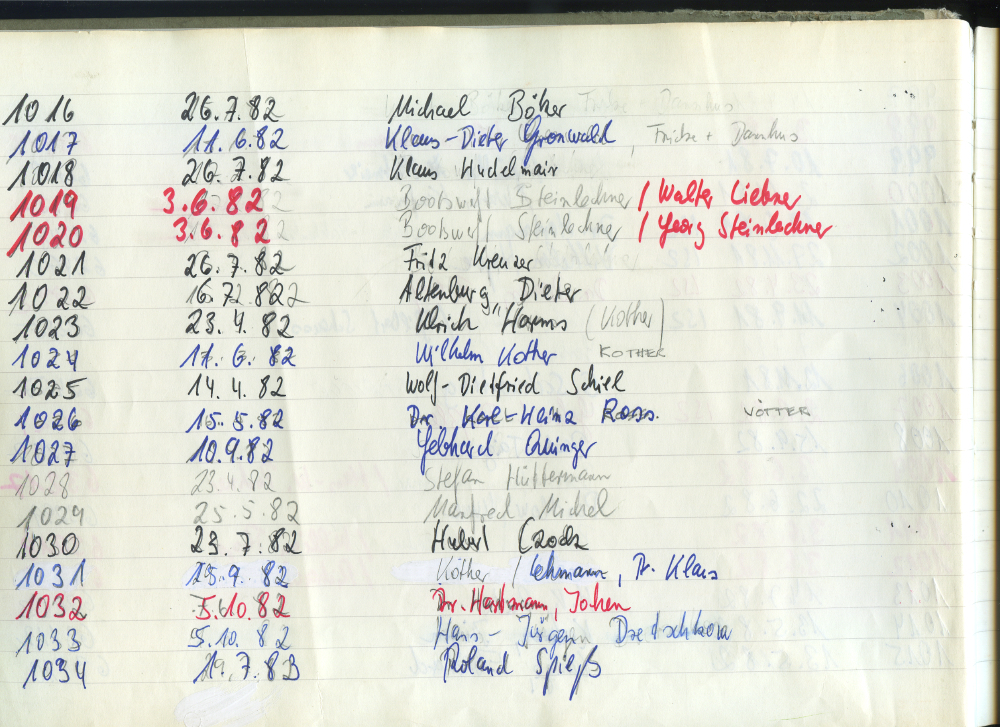 1016 26.7.82 Michael Böker
1017 11.6.82 Klaus-Dieter Gronwald, Fricke +
1018 26.7.82 Klaus Hudelmair
1019 3.6.82 Bootswerft Steinlechner / Walter Liebner
1020 3.6.82 Bootswerft Steinlechner / Georg Steinlechner
1021 26.7.82 Fritz Kreuzer
1022 16.7.82 Altenburg, Dieter
1023 23.4.82 Ulrich Harms (Kother)
1024 11.6.82 Wilhelm Kother KOTHER
1025 14.4.82 Wolf-Dietfried Schiel
1026 15.5.82 Dr. Karl-Heinz Ross. VÖTTER
1027 10.9.82 Gebhard
1028 23.4.82 Stefan Hüttermann
1029 25.5.82 Manfred Michel
1030 23.7.82 Hubert
1031 .9.82 Köther / Lehmann, Dr. Klaus
1032 5.10.82 Dr. Hartmann, Jochen
1033 5.10.82 Hans-Jürgen
1034 19.7.83 Roland Spieß